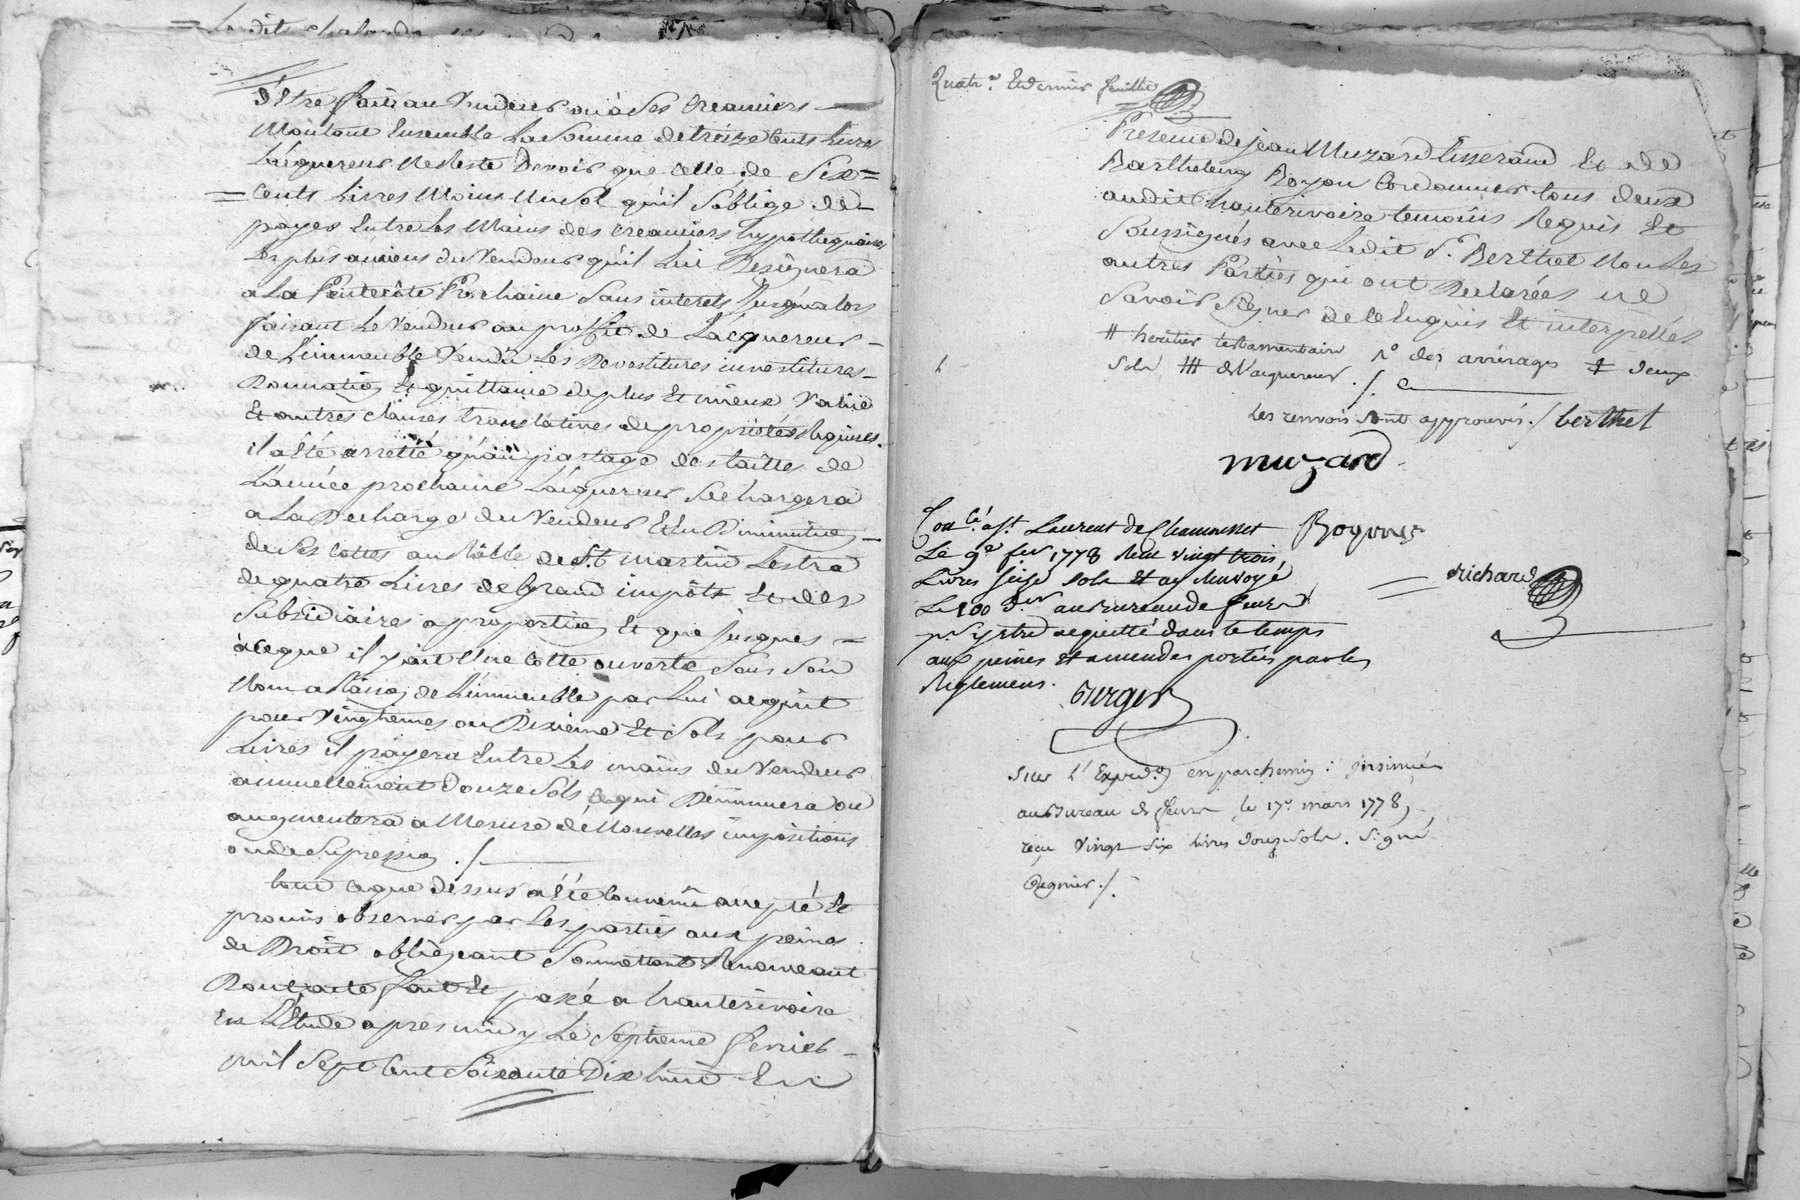 Lesdits
D'Etre faits au Vendeur ou à Ses Creanciers
Montant Ensemble La Somme de treize Cents Livres
L'acquereur Ne Reste Devoir que Celle de Six=
= Cents Livres Moins Un Sol qu'il S'oblige de
payer Entre Les Mains des Creanciers hypothequaires
Les plus anciens du Vendeur qu'il Lui Designera
a La Pentecôte Prochaine Sans interets Jusqu'alors
faisant Le Vendeur au proffit de L'acquereur
de L'immeuble Vendu Les Devestitures investitures
Donnation Et quittance de plus Et mieux Value
Et autres Clauses translatives de proprietés Requises.
il a Eté arretté qu'au partage des tailles de
L'année prochaine L'acquereur Se Chargera
a La Decharge du Vendeur Et En Diminution
de Ses Cottes au Rôlle de St. Martin Lestra
de quatre Livres de Grand impôts Et des
Subsidiaires a proportion Et que Jusques
à ce que il y ait Une Cotte ouverte Sous Son
Nom a Raison de L'immeuble par Lui acquit
pour Vingtiemes ou Dixieme Et Sols pour
Livres il payera Entre Les mains du Vendeur
annuellement Douze Sols Ce qui Diminuera ou
augmentera a Mesure de Nouvelles impositions
ou de Supression ./.
tout Ce que dessus a Eté Convenu accepté Et
promis observer par Les parties aux peines
de Droit obligeant Soumettant Renonceant
Dont acte fait Et passé a hauterivoire
En L'Etude apres midy Le Septieme fevrier
mil Sept Cent Soixante Dix huit En
Quatr.e Et dernier feuillet
Presence de Jean Muzard tisserand Et de
Barthelemy Royon Cordonnier tous deux
audit hauterivoire temoins Requis Et
Soussignés avec Ledit Sr. Berthet Non Les
autres Parties qui ont Declarées ne
Savoir Signer de Ce Enquis Et interpellés
# heritier testamentaire des arrérages ‡ deux
Sols ⧻ de L'acquereur ./.
les renvois sont approuvés ./. berthet
muzard
Royon
richard
Con.lé a St. Laurent de Chamousset
Le 9e fev 1778 Reçu vingt trois
Livres seize sols Et ay Renvoyé
Le 100 D.er au Bureau de feurs
pr y etre acquitté dans le temps
aux peines et amendes portées par les
Reglemens.
Sur L'Exped.on en parchemin : insinué
au Bureau de feurs le 17e mars 1778,
reçu vingt six livres douze sols. Signé